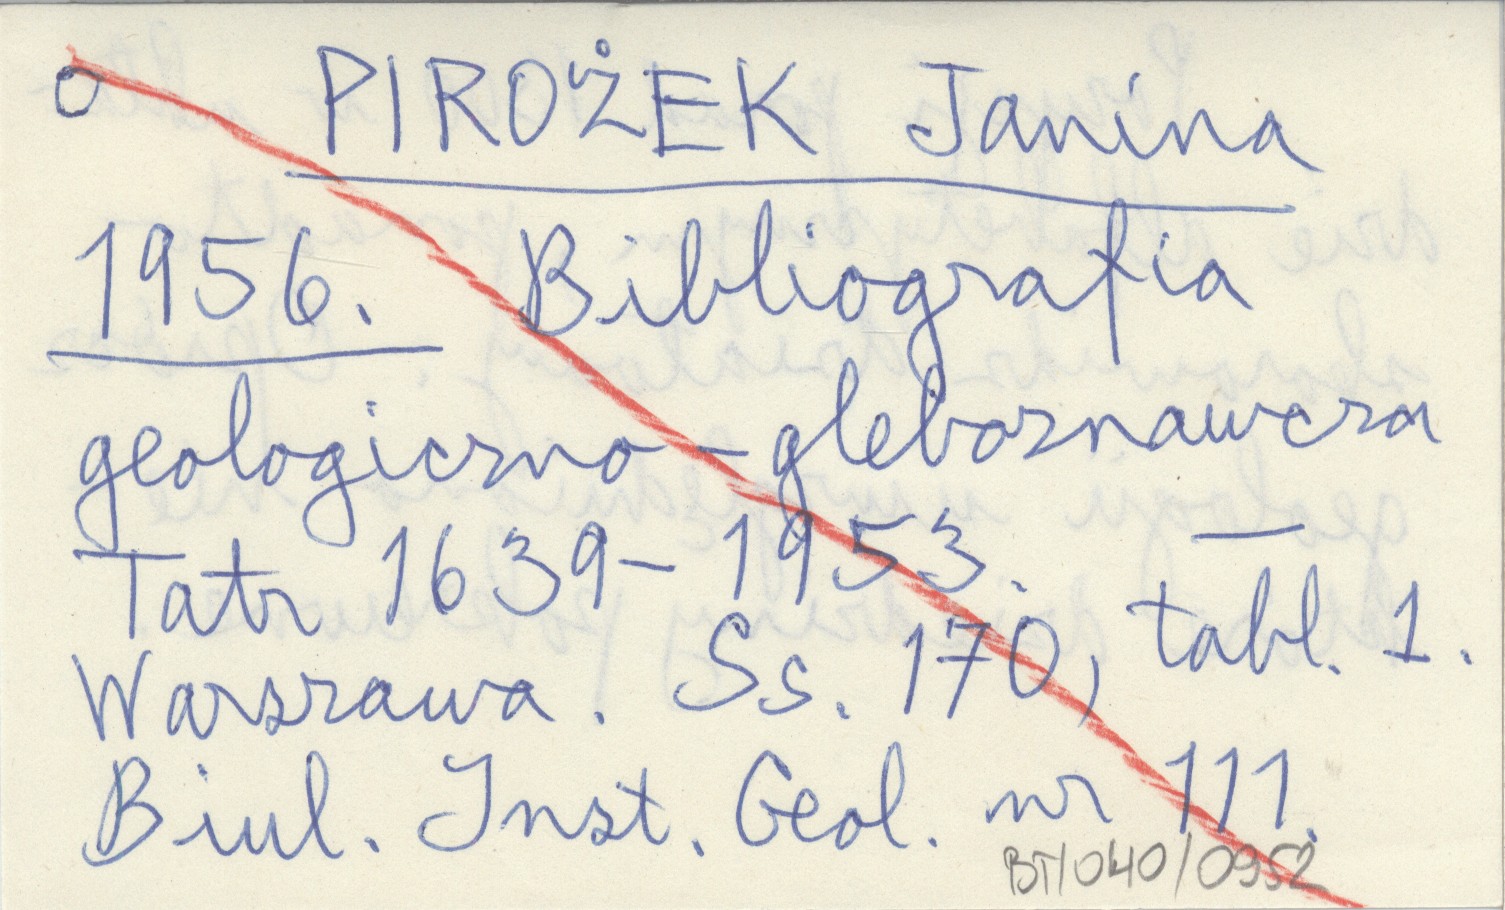 o PIROŻEK Janina
1956. Bibliografia
geologiczno-gleboznawcza
Tatr 1639-1953. —
Warszawa. Ss. 170, tabl. 1.
Biul. Inst. Geol. nr 111.
BT/040/0952